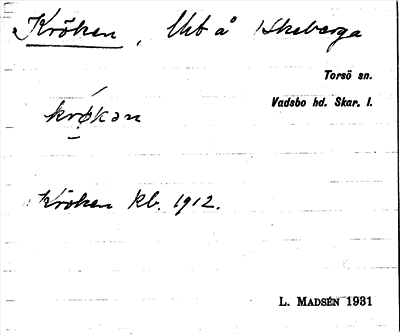 Kröken, Utt å Skeberga
Torsö sn.
Vadsbo hd. Skar. l.
krø̀kən
Kröken kb. 1912.
L. MADSÉN 1931